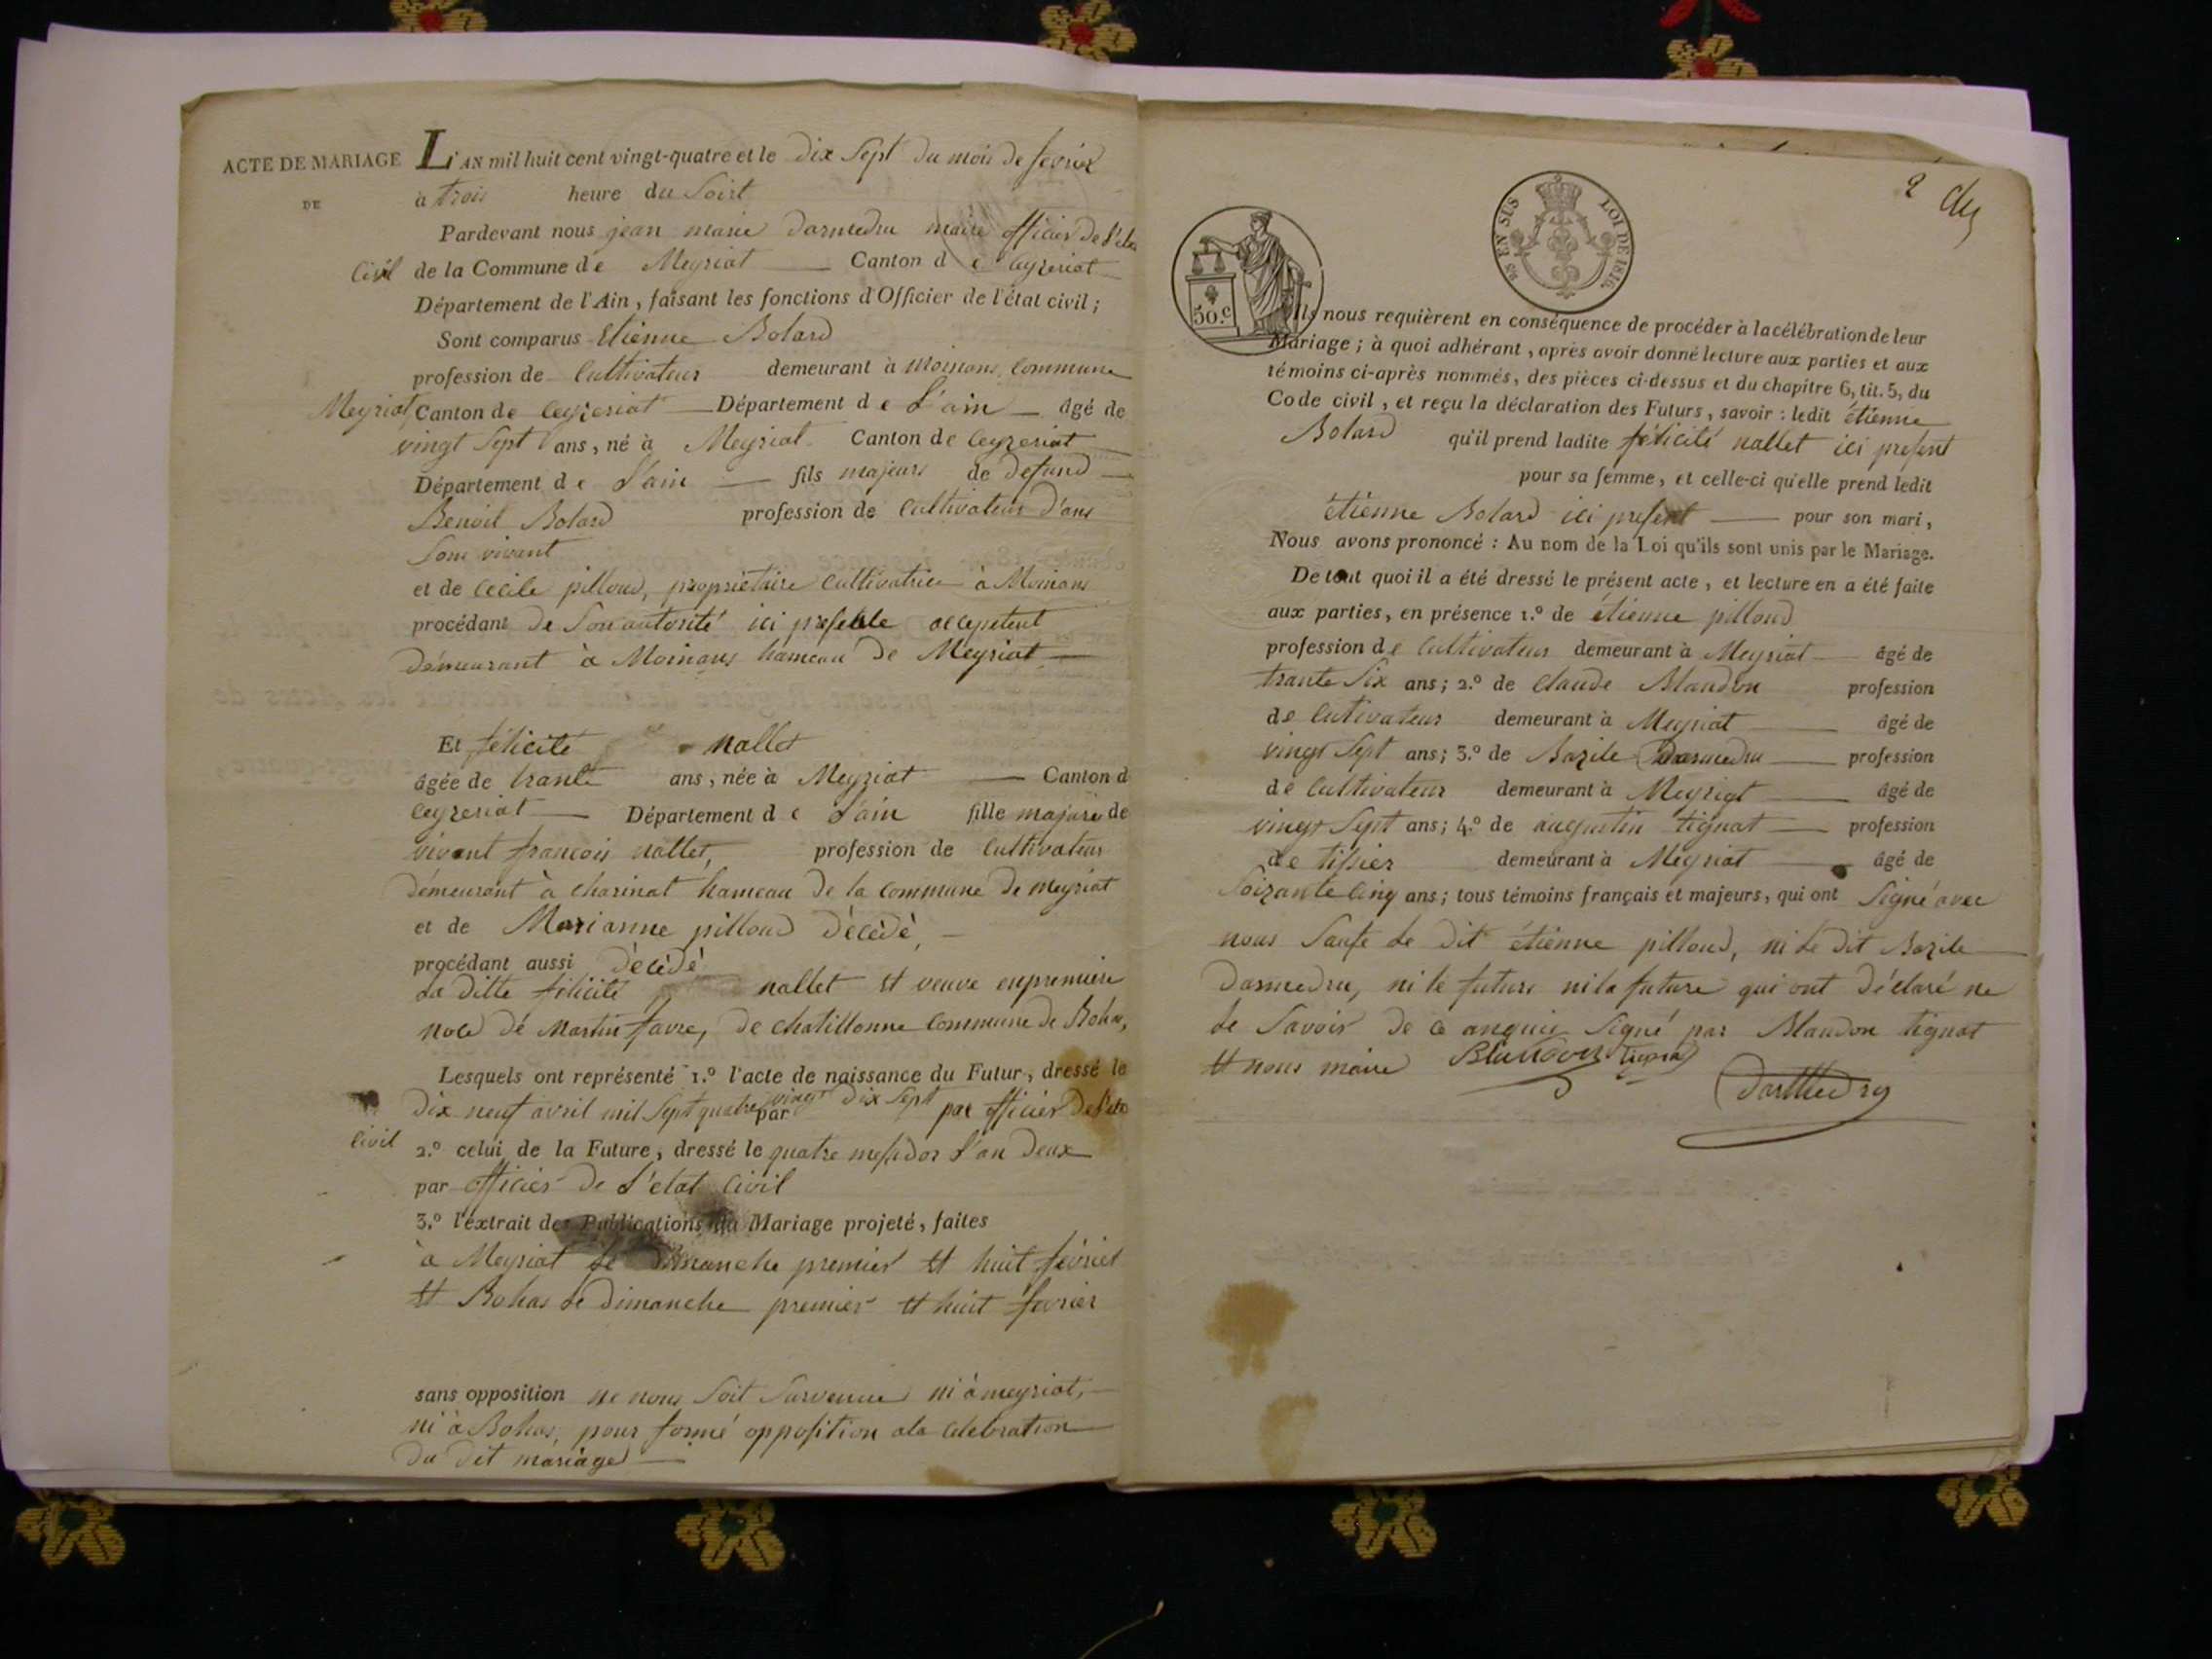 ACTE DE MARIAGE
DE
L'AN mil huit cent vingt-quatre et le dix Sept du mois de fevrier
à trois heure du Soirt
Pardevant nous jean marie darmedru maire officier de l'etat
Civil de la Commune de Meyriat Canton de Ceyzeriat
Département de l'Ain, faisant les fonctions d'Officier de l'état civil;
Sont comparus Etienne Bolard
profession de Cultivateur demeurant à Moinans Commune
Meyriat Canton de Ceyzeriat Département de L'ain âgé de
vingt Sept ans, né à Meyriat Canton de Ceyzeriat
Département de L'ain fils majeurs de defund
Benoit Bolard profession de Cultivateur d'ans
Son vivant
et de Cecile pilloud, propriètaire Cultivatrice à Moinans
procédant de Son autorité ici presente
démeurant à Moinans hameau de Meyriat
Et félicité nallet
âgée de trante ans, née à Meyriat Canton d
Ceyzeriat Département de L'ain fille majure de
vivant francois nallet, profession de Cultivateur
démeurant à Charinat hameau de la Commune de meyriat
et de Marianne pilloud dècèdè
procédant aussi dècèdè
La ditte félicité nallet et veuve enpremiere
noce dé Martin favre, de Chatillonne Commune de Bohas,
Lesquels ont représenté 1.º l'acte de naissance du Futur, dressé le
dix neuf avril mil Sept quatre vingt dix Sept par par officier de l'etat
Civil
2.º celui de la Future, dressé le quatre mesidor L'an deux
par officier de L'etat Civil
3.º l'éxtrait des Publications du Mariage projeté, faites
à Meyriat le dimanche premier et huit février
et Bohas le dimanche premier et huit fevrier
sans opposition ne nous Soit Survenue ni à meyriat,
ni à Bohas, pour formé opposition ala Celebration
du dit mariage
2
50.c
EN SUS LOI DE 1816.
Ils nous requièrent en conséquence de procéder à la célébration de leur
Mariage; à quoi adhérant, après avoir donné lecture aux parties et aux
témoins ci-après nommés, des pièces ci-dessus et du chapitre 6, tit. 5, du
Code civil, et reçu la déclaration des Futurs, savoir: ledit étienne
Bolard qu'il prend ladite félicité nallet ici present
pour sa femme, et celle-ci qu'elle prend ledit
étienne Bolard ici present pour son mari,
Nous avons prononcé: Au nom de la Loi qu'ils sont unis par le Mariage.
De tout quoi il a été dressé le présent acte, et lecture en a été faite
aux parties, en présence 1.º de étienne pilloud
profession de Cultivateur demeurant à Meyriat âgé de
trante Six ans; 2.º de Claude Blandon profession
de Cutivateur demeurant à Meyriat âgé de
vingt Sept ans; 3.º de Bazile Darmedru profession
de Cultivateur demeurant à Meyriat âgé de
vingt Sept ans; 4.º de augustin tignat profession
de tissier demeurant à Meyriat âgé de
Soizante Cinq ans; tous témoins français et majeurs, qui ont Signé avec
nous Saufe Le dit étienne pilloud, ni Le dit Bazile
Darmedru, ni le future ni la future qui ont déclaré ne
Le Savoir de Ce anquis Signé par Blandon tignat
et nous maire Blandon tignat
Darmedru